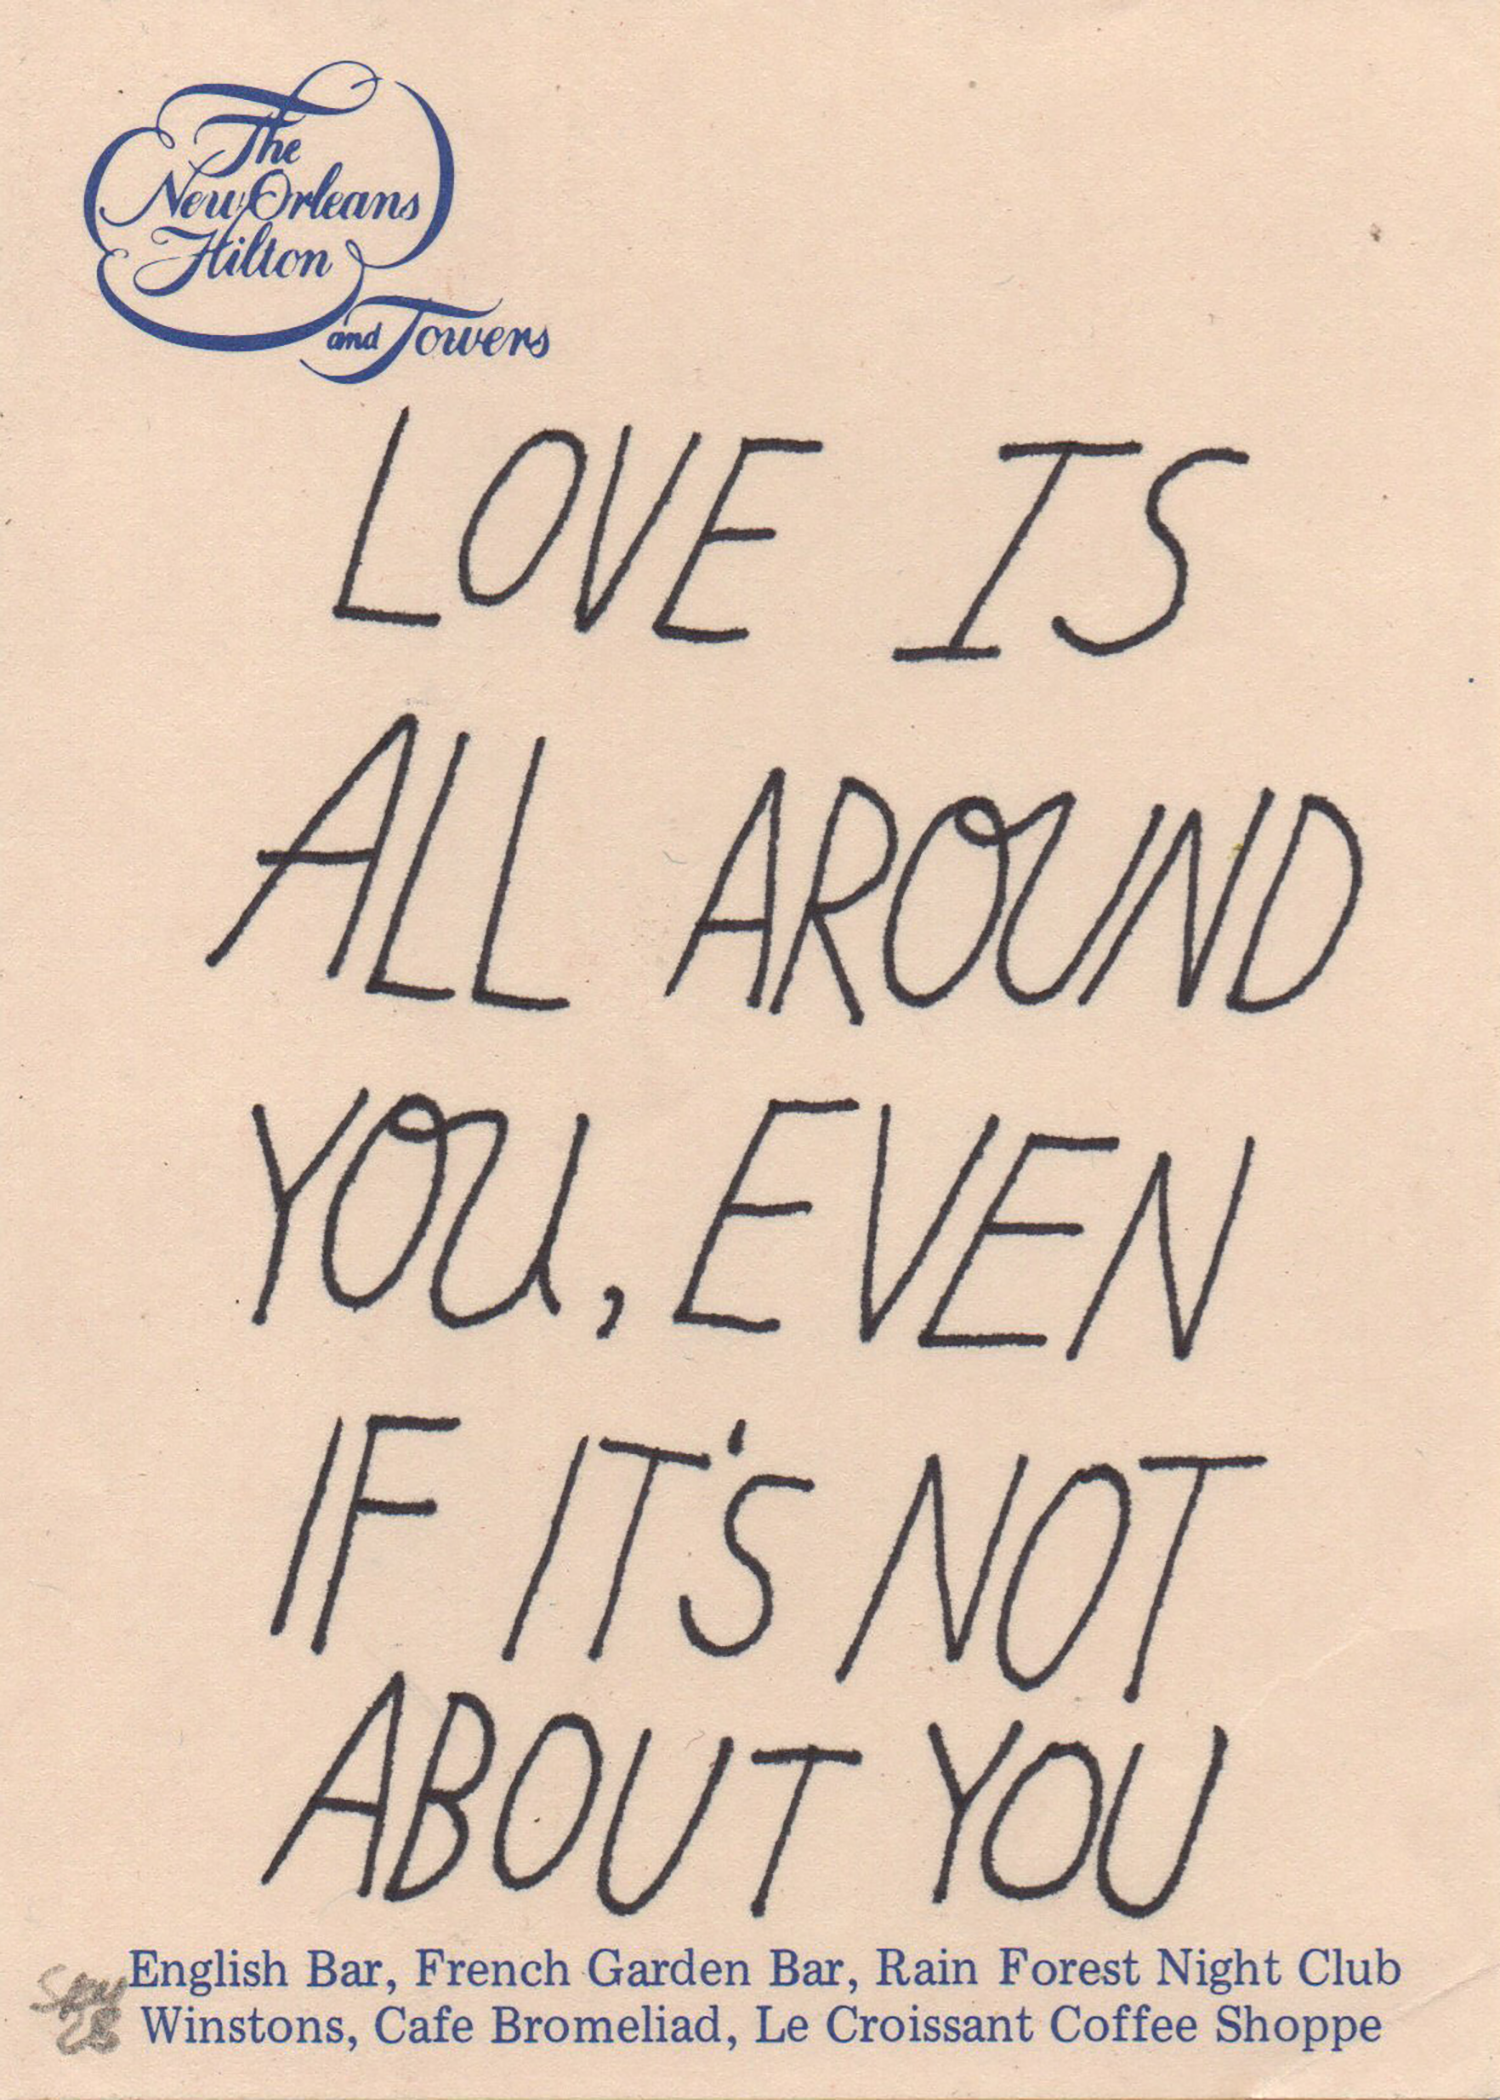 The
New Orleans
Hilton
and Towers
LOVE IS
ALL AROUND
YOU, EVEN
IF IT'S NOT
ABOUT YOU
English Bar, French Garden Bar, Rain Forest Night Club
Winstons, Cafe Bromeliad, Le Croissant Coffee Shoppe